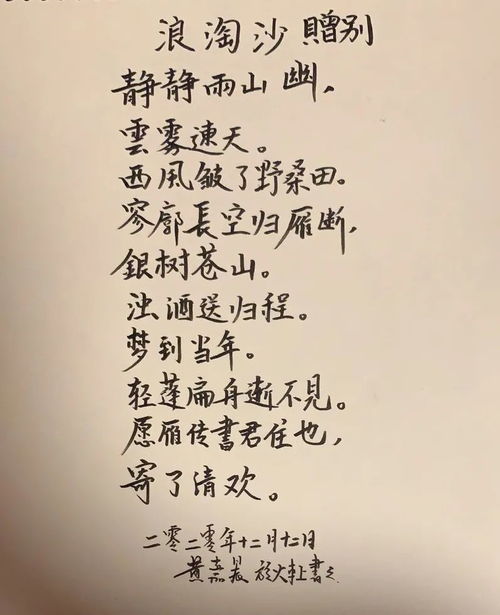 浪淘沙 贈别
静静雨山幽，
雲雾連天。
西風皱了野桑田。
寥廓長空归雁断，
銀树苍山。
浊酒送归程。
梦到当年。
轻蓬扁舟逝不見。
愿雁传書君住也，
寄了清欢。
二零二零年十二月十二日
黄嘉晟 於火車上書之